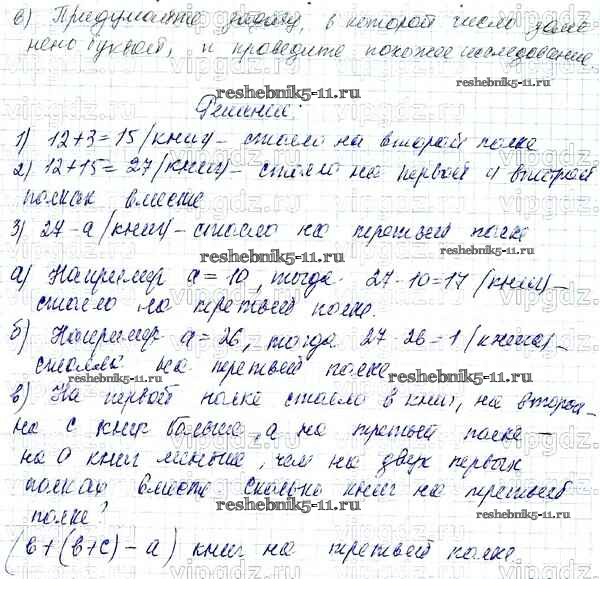 в) Придумайте задачу, в которой число заме
нено буквой, и проведите похожее исследование
reshebnik5-11.ru
Решение:
1) 12+3=15 (книг) - стояло на второй полке
2) 12+15=27 (книг) - стояло на первой и второй
полках вместе
3) 27-а (книг) - стояло на третьей полке
reshebnik5-11.ru
а) Например а=10, тогда 27-10=17 (книг) -
стояло на третьей полке.
б) Например а=26, тогда 27-26=1 (книга) -
стояла на третьей полке
reshebnik5-11.ru
в) На первой полке стояло в книг, на второй -
на с книг больше, а на третьей полке -
на а книг меньше, чем на двух первых
полках вместе. Сколько книг на третьей
reshebnik5-11.ru
полке?
(в+(в+с)-а) книг на третьей полке
reshebnik5-11.ru
vipgdz.